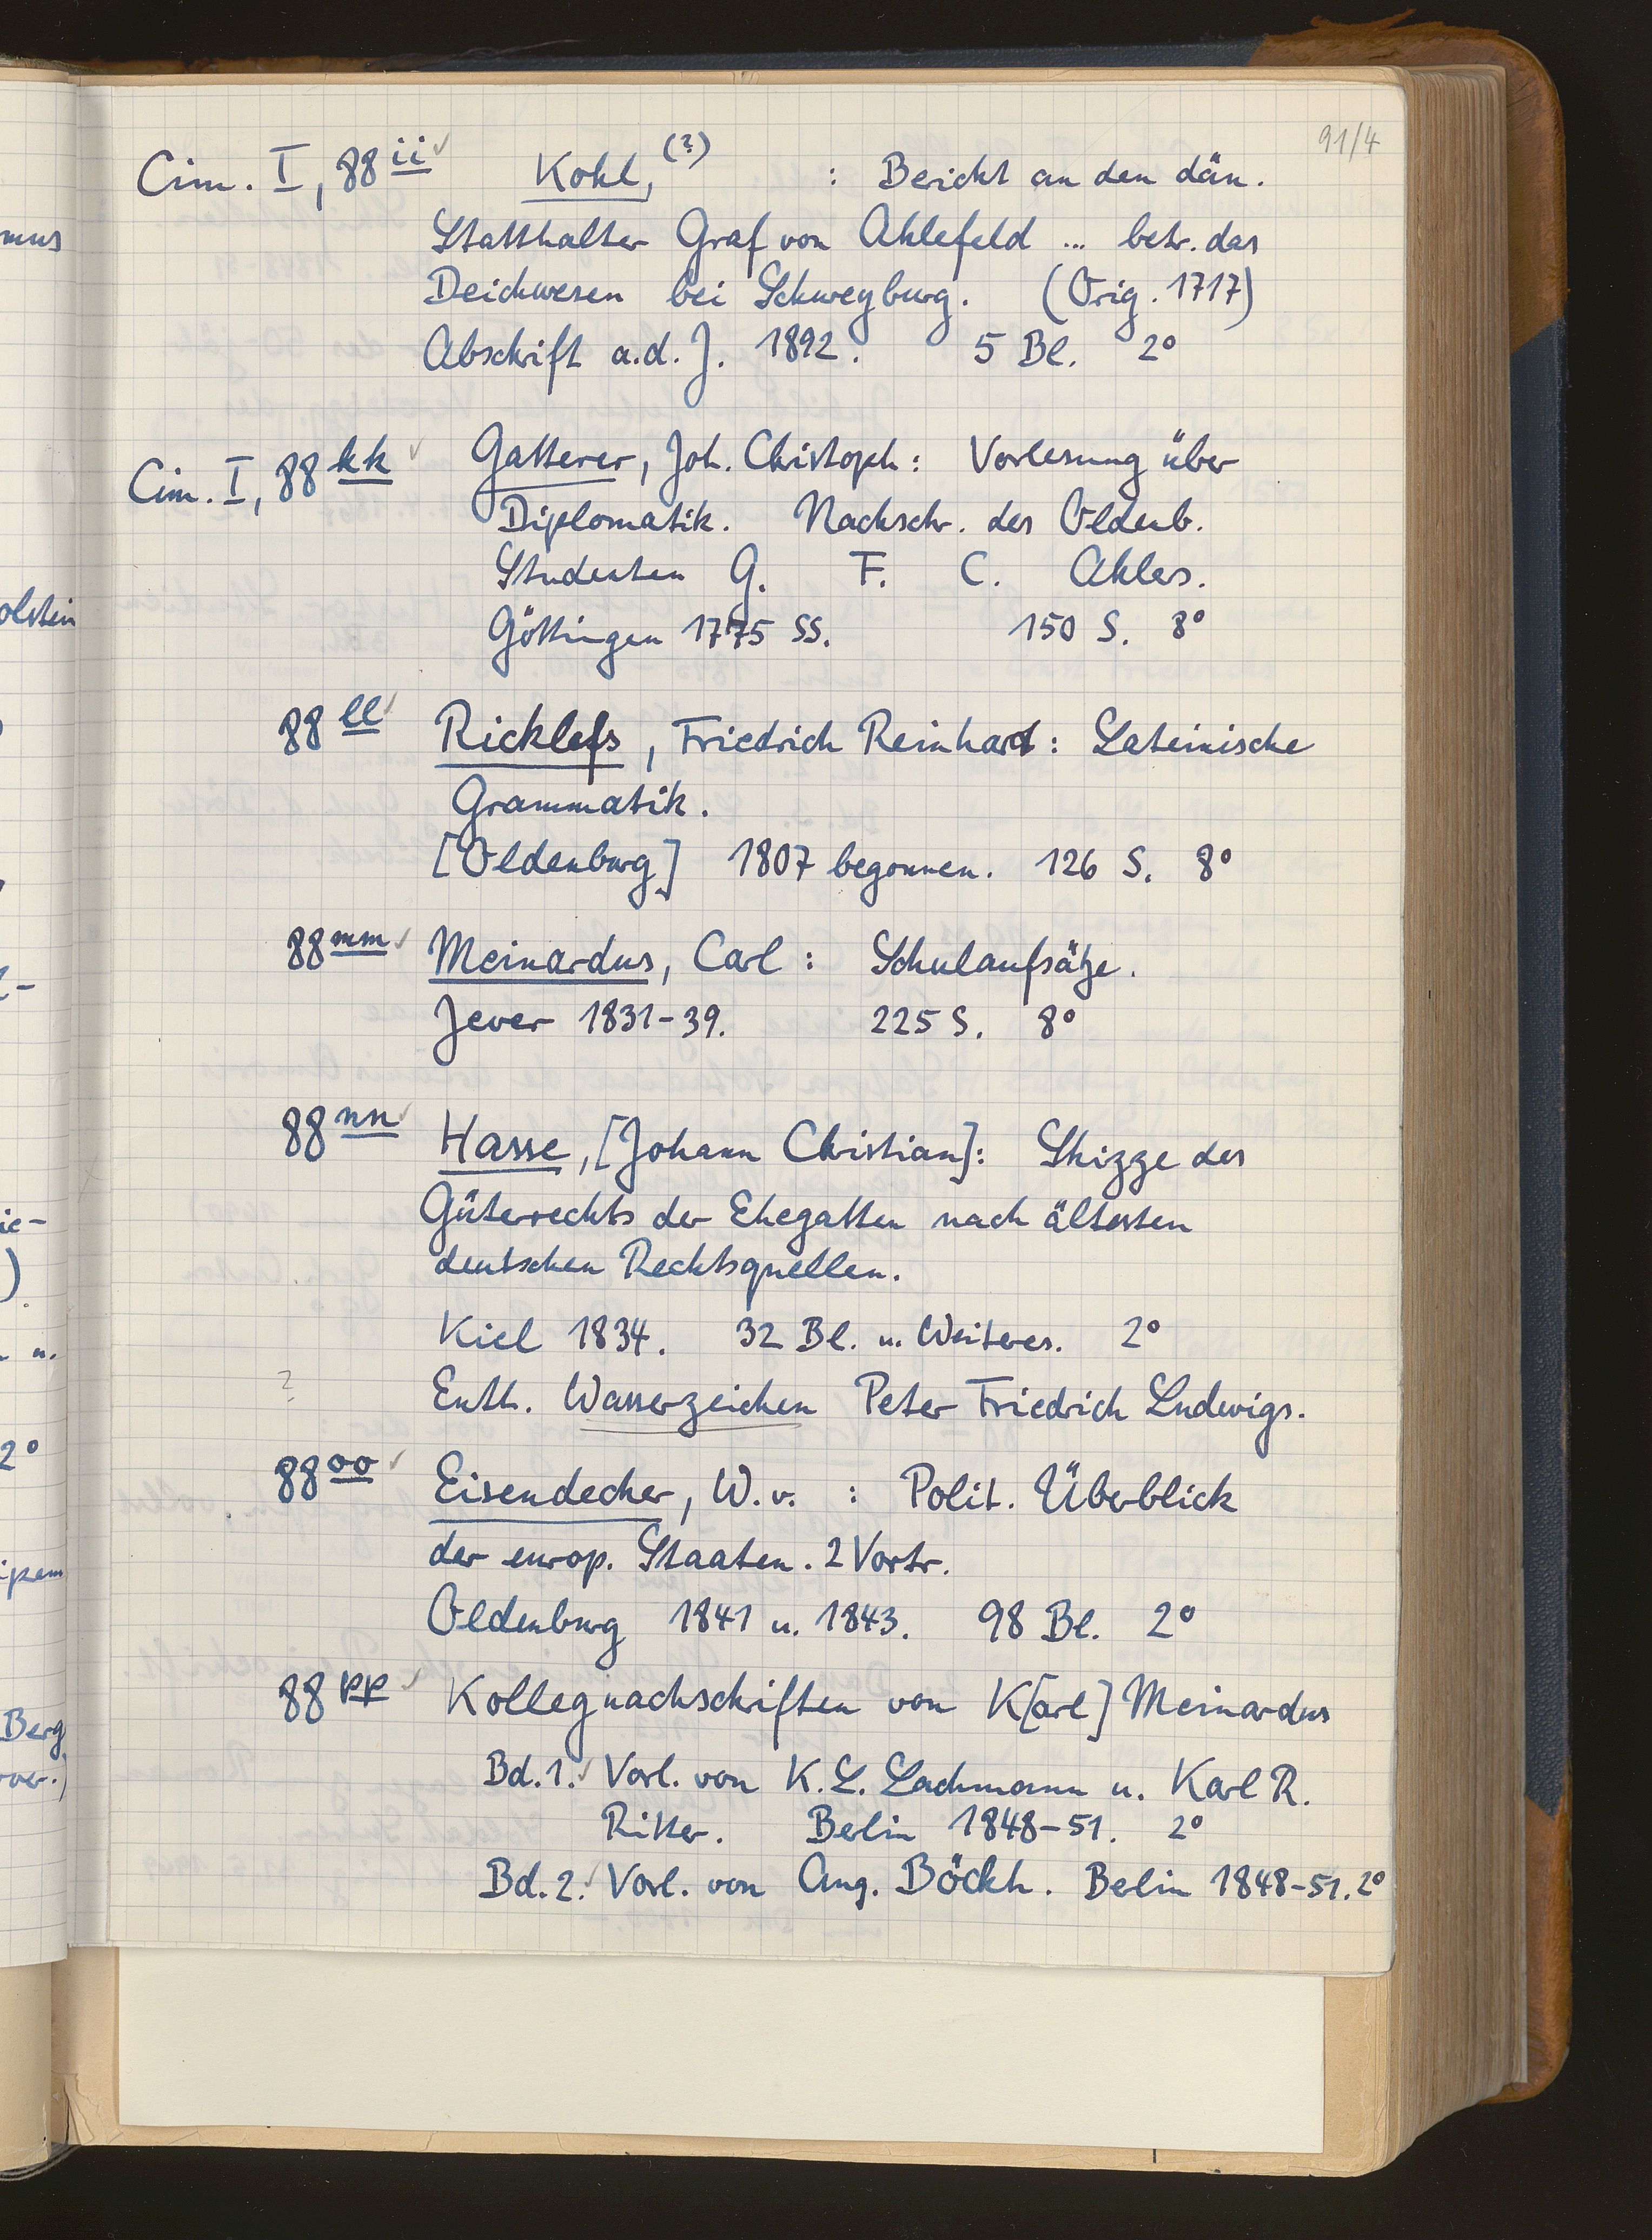 91/4
Cim. I, 88 ii ✓ Kohl, (?) : Bericht an den dän.
Statthalter Graf von Ahlefeld ... betr. das
Deichwesen bei Schweyburg. (Orig. 1717)
Abschrift a.d.J. 1892. 5 Bl. 2°
Cim. I, 88 kk ✓ Gatterer, Joh. Christoph: Vorlesung über
Diplomatik. Nachschr. des Oldenb.
Studenten G. F. C. Ahlers.
Göttingen 1775 SS. 150 S. 8°
88 ll ✓ Ricklefs, Friedrich Reinhard: Lateinische
Grammatik.
[Oldenburg] 1807 begonnen. 126 S. 8°
88 mm ✓ Meinardus, Carl: Schulaufsätze.
Jever 1831-39. 225 S. 8°
88 nn ✓ Hasse, [Johann Christian]: Skizze des
Güterrechts der Ehegatten nach ältesten
deutschen Rechtsquellen.
Kiel 1834. 32 Bl. u. Weiteres. 2°
? Enth. Wasserzeichen Peter Friedrich Ludwigs.
88 oo ✓ Eisendecher, W. v. : Polit. Überblick
der europ. Staaten. 2 Vortr.
Oldenburg 1841 u. 1843. 98 Bl. 2°
88 pp ✓ Kollegnachschriften von K[arl] Meinardus
Bd. 1. ✓ Vorl. von K. L. Lachmann u. Karl R.
Ritter. Berlin 1848-51. 2°
Bd. 2. ✓ Vorl. von Aug. Böckh. Berlin 1848-51. 2°
mus
olstein
ie-
)
u.
2°
ipem
Berg